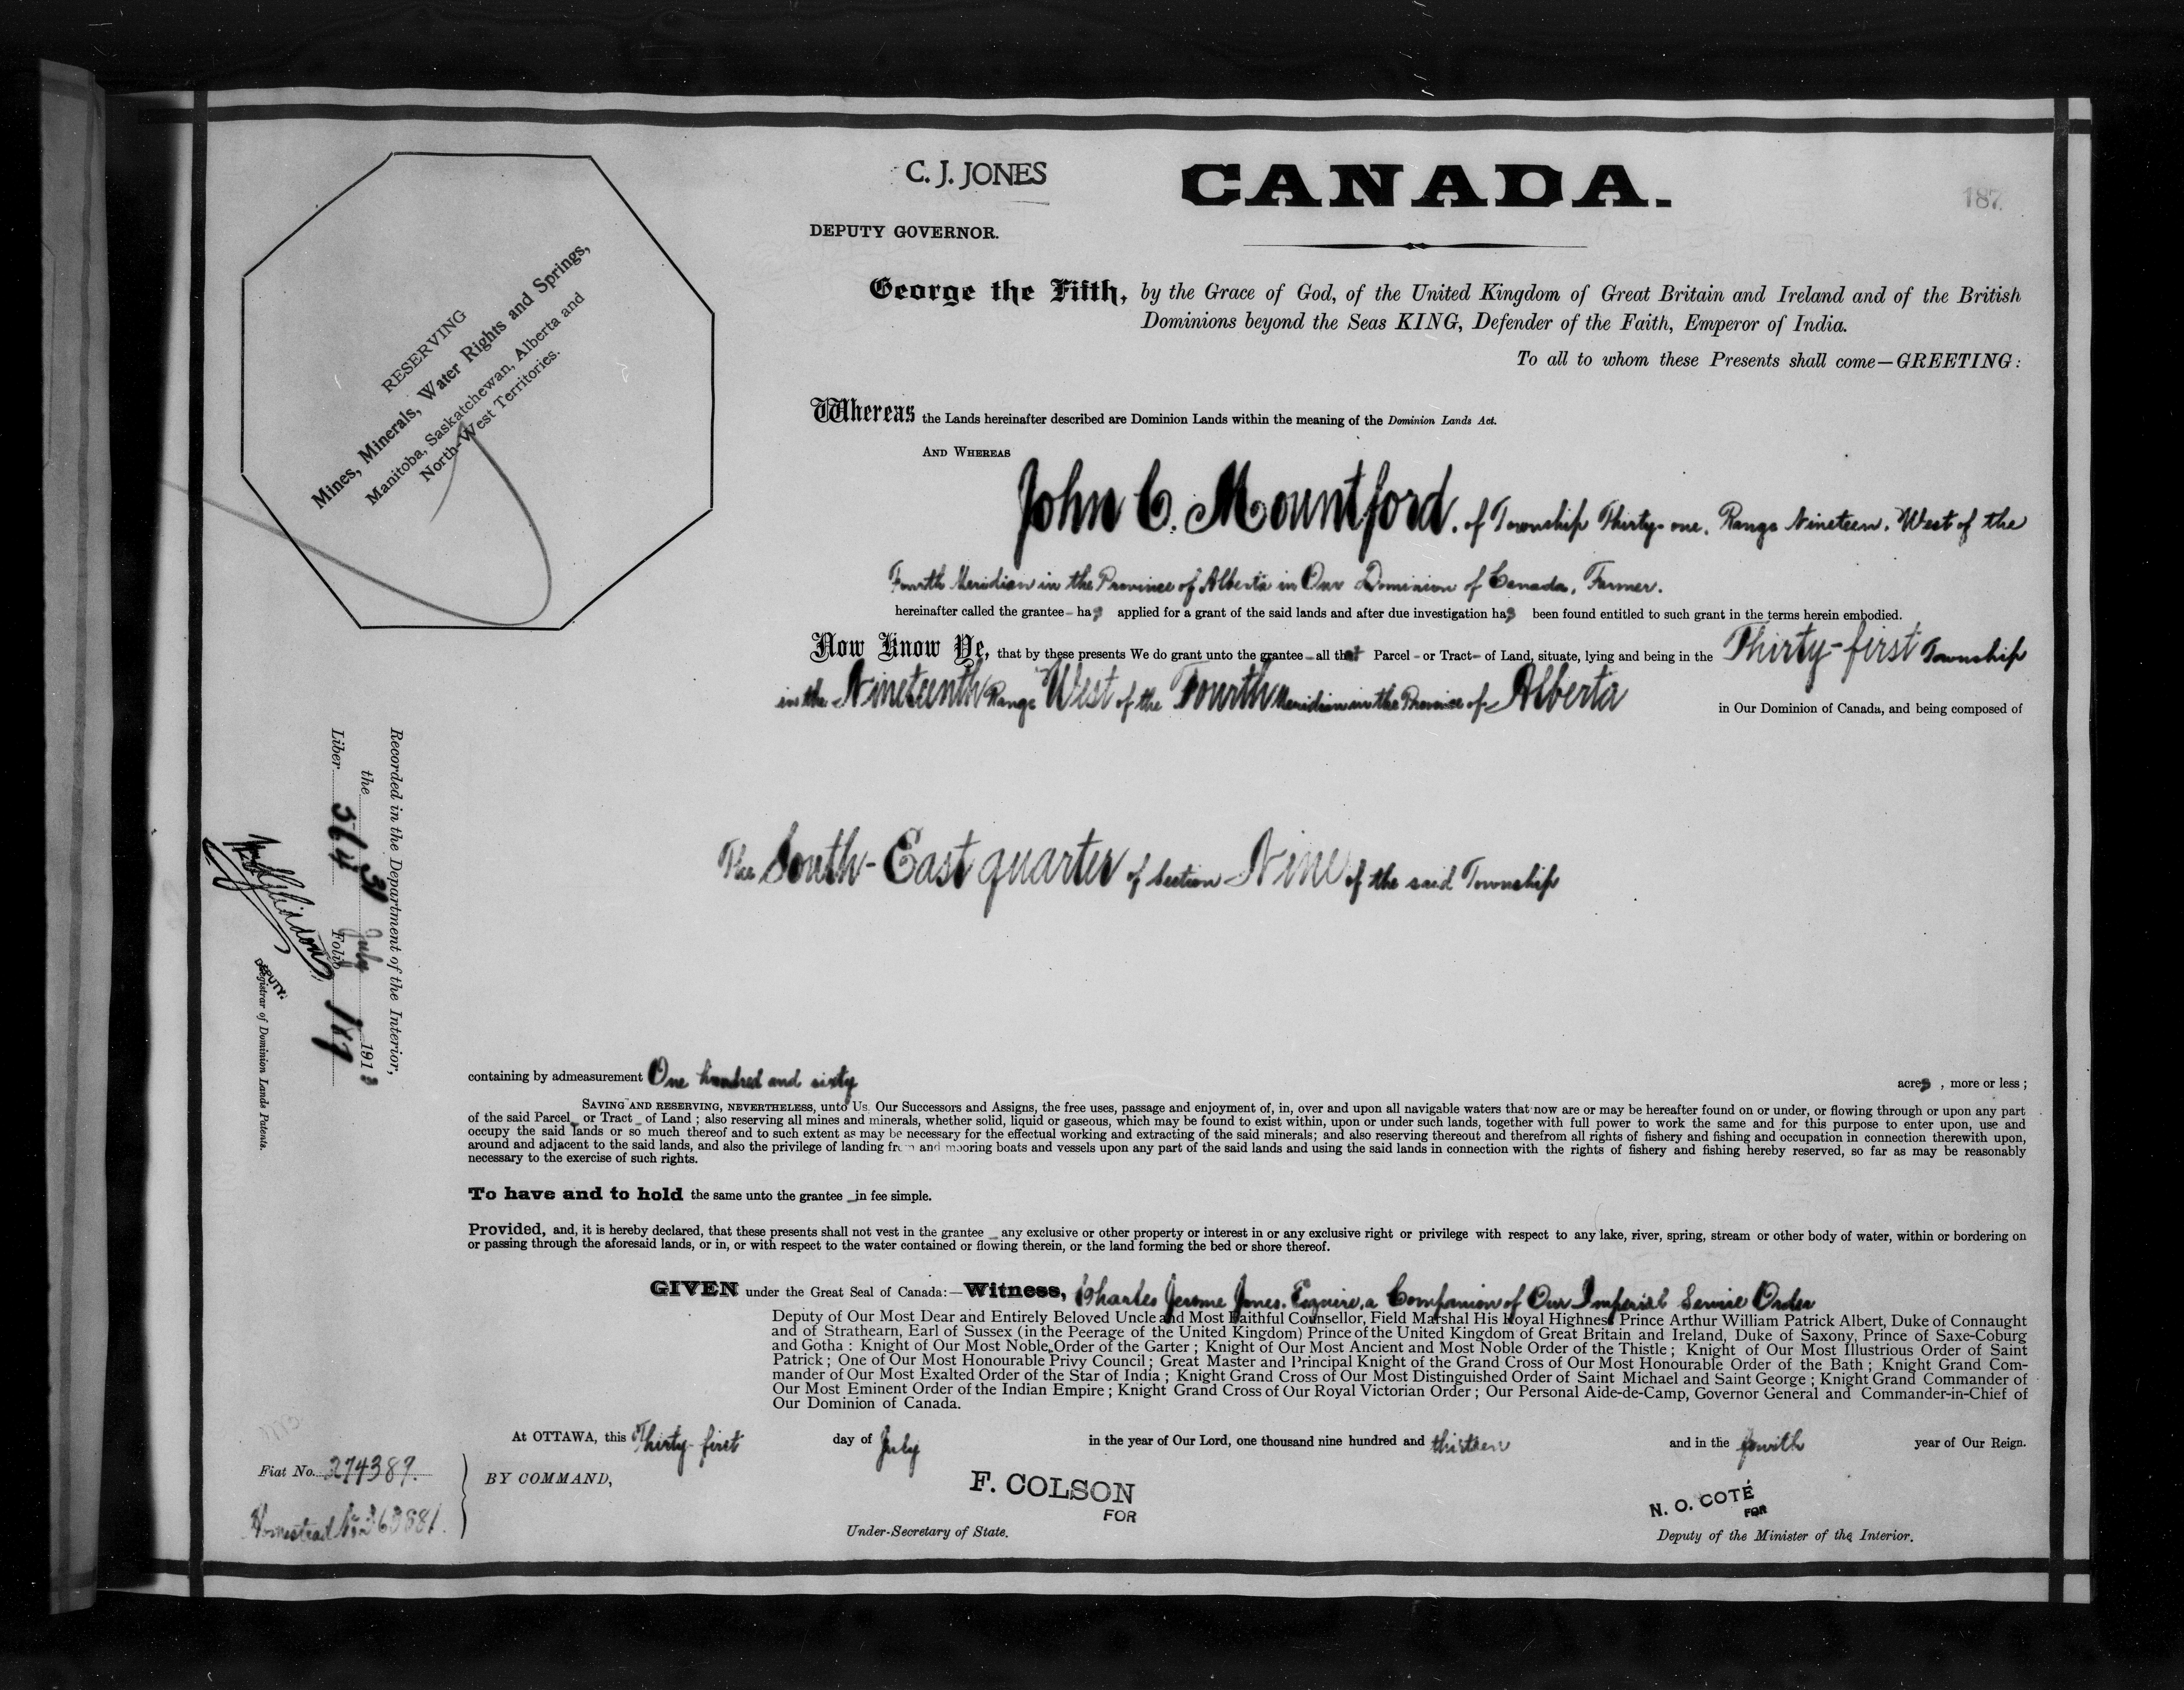 C. J. JONES
CANADA.
187
DEPUTY GOVERNOR.
RESERVING
Mines, Minerals, Water Rights and Springs,
Manitoba, Saskatchewan, Alberta and
North-West Territories.
George the Fifth, by the Grace of God, of the United Kingdom of Great Britain and Ireland and of the British
Dominions beyond the Seas KING, Defender of the Faith, Emperor of India.
To all to whom these Presents shall come—GREETING:
Whereas the Lands hereinafter described are Dominion Lands within the meaning of the Dominion Lands Act.
AND WHEREAS
John C. Mountford. of Township Thirty-one, Range Nineteen, West of the
Fourth Meridian in the Province of Alberta in Our Dominion of Canada, Farmer.
hereinafter called the grantee - has applied for a grant of the said lands and after due investigation has been found entitled to such grant in the terms herein embodied.
Now Know Ye, that by these presents We do grant unto the grantee - all that Parcel - or Tract - of Land, situate, lying and being in the Thirty-first Township
in the Nineteenth Range West of the Fourth Meridian in the Province of Alberta in Our Dominion of Canada, and being composed of
The South-East quarter of Section Nine of the said Township
Recorded in the Department of the Interior,
the 31 July 1913
Liber 564 Folio 187
DEPUTY.
Registrar of Dominion Lands Patents.
containing by admeasurement One hundred and sixty acres, more or less;
SAVING AND RESERVING, NEVERTHELESS, unto Us, Our Successors and Assigns, the free uses, passage and enjoyment of, in, over and upon all navigable waters that now are or may be hereafter found on or under, or flowing through or upon any part
of the said Parcel - or Tract - of Land; also reserving all mines and minerals, whether solid, liquid or gaseous, which may be found to exist within, upon or under such lands, together with full power to work the same and for this purpose to enter upon, use and
occupy the said lands or so much thereof and to such extent as may be necessary for the effectual working and extracting of the said minerals; and also reserving thereout and therefrom all rights of fishery and fishing and occupation in connection therewith upon,
around and adjacent to the said lands, and also the privilege of landing from and mooring boats and vessels upon any part of the said lands and using the said lands in connection with the rights of fishery and fishing hereby reserved, so far as may be reasonably
necessary to the exercise of such rights.
To have and to hold the same unto the grantee - in fee simple.
Provided, and, it is hereby declared, that these presents shall not vest in the grantee - any exclusive or other property or interest in or any exclusive right or privilege with respect to any lake, river, spring, stream or other body of water, within or bordering on
or passing through the aforesaid lands, or in, or with respect to the water contained or flowing therein, or the land forming the bed or shore thereof.
GIVEN under the Great Seal of Canada:—Witness, Charles Jerome Jones, Esquire, a Companion of Our Imperial Service Order
Deputy of Our Most Dear and Entirely Beloved Uncle and Most Faithful Counsellor, Field Marshal His Royal Highness Prince Arthur William Patrick Albert, Duke of Connaught
and of Strathearn, Earl of Sussex (in the Peerage of the United Kingdom) Prince of the United Kingdom of Great Britain and Ireland, Duke of Saxony, Prince of Saxe-Coburg
and Gotha: Knight of Our Most Noble Order of the Garter; Knight of Our Most Ancient and Most Noble Order of the Thistle; Knight of Our Most Illustrious Order of Saint
Patrick; One of Our Most Honourable Privy Council; Great Master and Principal Knight of the Grand Cross of Our Most Honourable Order of the Bath; Knight Grand Com-
mander of Our Most Exalted Order of the Star of India; Knight Grand Cross of Our Most Distinguished Order of Saint Michael and Saint George; Knight Grand Commander of
Our Most Eminent Order of the Indian Empire; Knight Grand Cross of Our Royal Victorian Order; Our Personal Aide-de-Camp, Governor General and Commander-in-Chief of
Our Dominion of Canada.
At OTTAWA, this Thirty-first day of July in the year of Our Lord, one thousand nine hundred and thirteen and in the fourth year of Our Reign.
Fiat No. 274389.
Homestead No. 263881.
BY COMMAND,
F. COLSON
FOR
Under-Secretary of State.
N. O. COTÉ
FOR
Deputy of the Minister of the Interior.